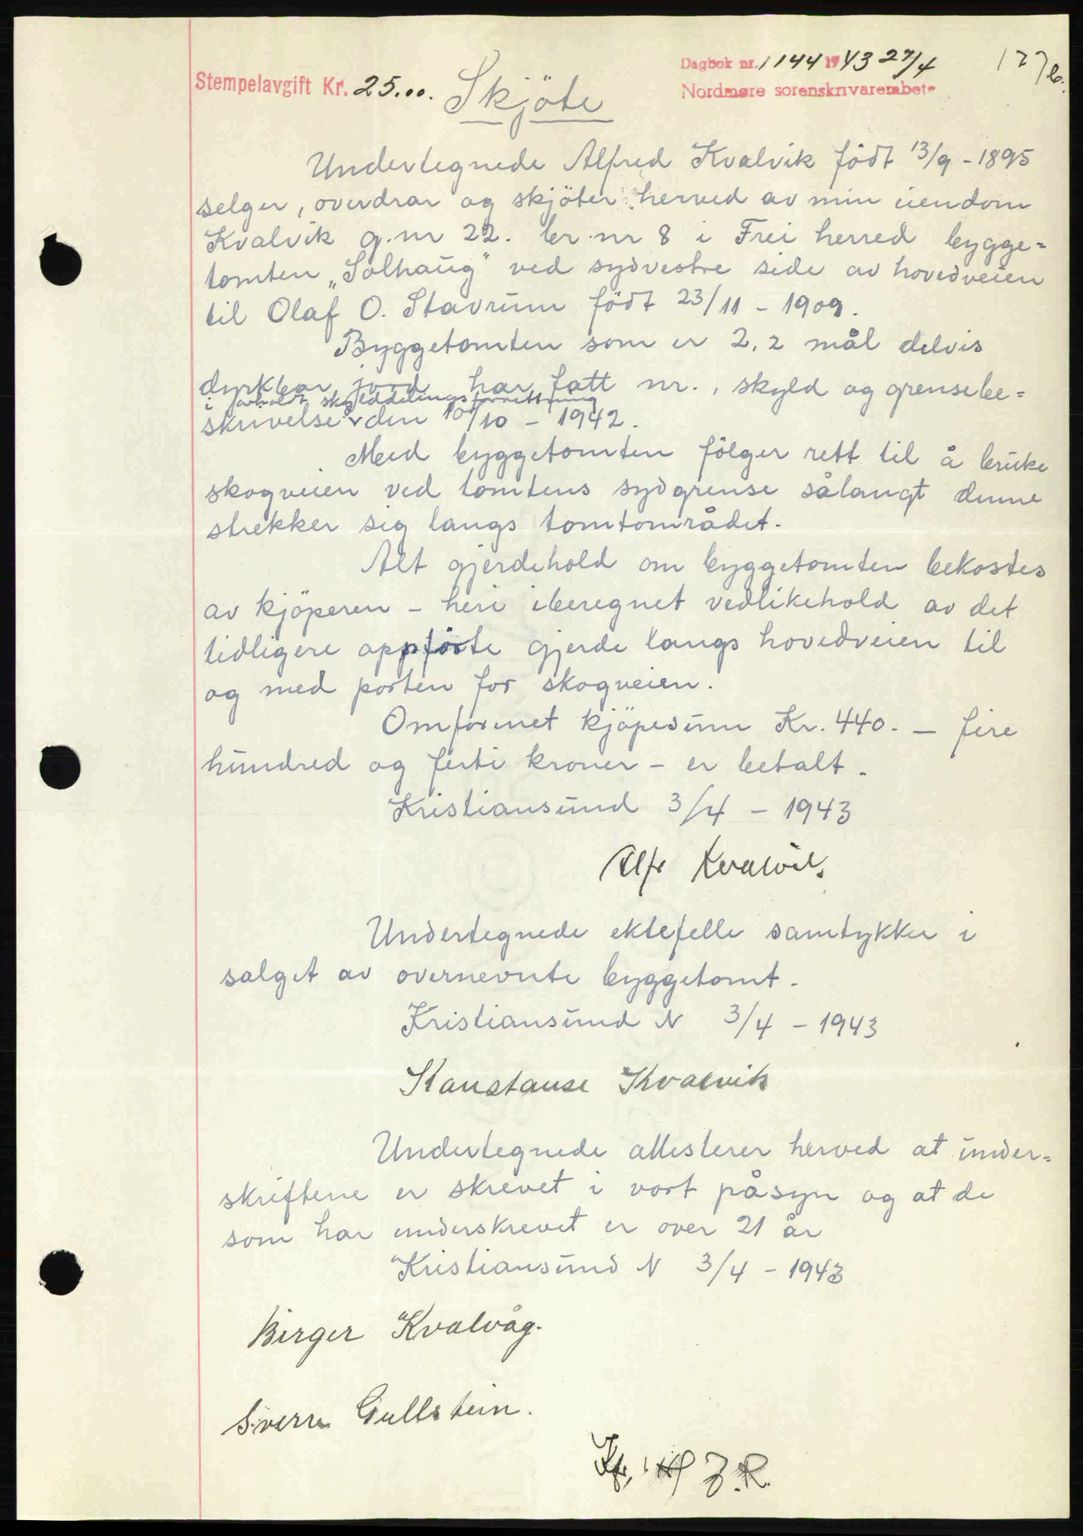 Stempelavgift Kr. 25.00.
Dagbok nr. 1144 1943 27/4
Nordmøre sorenskriverembete
177b.
Skjöte
Undertegnede Alfred Kvalvik födt 13/9 - 1895
selger, overdrar og skjöter herved av min eiendom
Kvalvik g.nr 22. br.nr 8 i Frei herred bygge=
tomten „Solhaug" ved sydvestre side av hovedveien
til Olaf O. Stavrum födt 23/11 - 1909.
Byggetomten som er 2,2 mål delvis
dyrkbar jord har fått nr., skyld og grensebe=
i avholdt skylddelingsforretning
skrivelse v den 10/10 - 1942.
Med byggetomten fölger rett til å bruke
skogveien ved tomtens sydgrense sålangt denne
strekker sig langs tomtområdet.
Alt gjerdehold om byggetomten bekostes
av kjöperen - heri iberegnet vedlikehold av det
tidligere oppförte gjerde langs hovedveien til
og med porten for skogveien.
Omforenet kjöpesum Kr. 440. - fire
hundred og firti kroner - er betalt.
Kristiansund 3/4 - 1943
Alfr Kvalvik.
Undertegnede ektefelle samtykker i
salget av overnevnte byggetomt.
Kristiansund N 3/4 - 1943
Konstanse Kvalvik
Undertegnede attesterer herved at under=
skriftene er skrevet i vort påsyn og at de
som har underskrevet er over 21 år
Kristiansund N 3/4 - 1943
Birger Kvalvåg.
Sverre Gullstein.